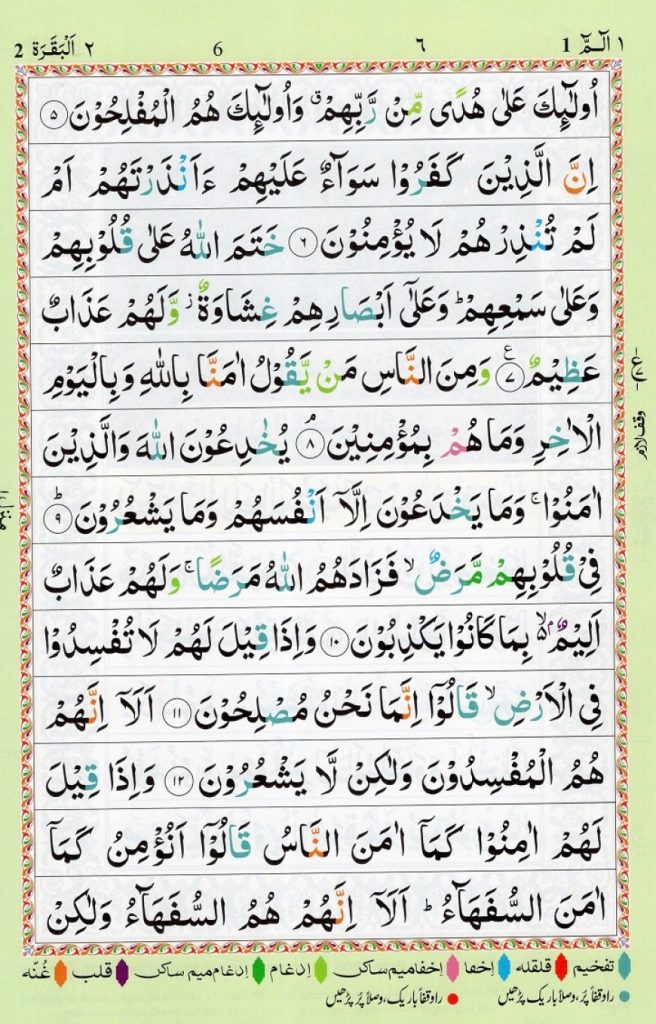 ١ الٓمّٓ 1 ٦ 6 ٢ اَلْبَقَرَة 2
اُولٰٓئِكَ عَلٰى هُدًى مِّنْ رَّبِّهِمْ ۗ وَاُولٰٓئِكَ هُمُ الْمُفْلِحُوْنَ ۵
اِنَّ الَّذِيْنَ كَفَرُوْا سَوَآءٌ عَلَيْهِمْ ءَاَنْذَرْتَهُمْ اَمْ
لَمْ تُنْذِرْهُمْ لَا يُؤْمِنُوْنَ ۶ خَتَمَ اللّٰهُ عَلٰى قُلُوْبِهِمْ
وَعَلٰى سَمْعِهِمْ ؕ وَعَلٰٓى اَبْصَارِهِمْ غِشَاوَةٌ ز وَّلَهُمْ عَذَابٌ
عَظِيْمٌ ۷ ع وَمِنَ النَّاسِ مَنْ يَّقُوْلُ اٰمَنَّا بِاللّٰهِ وَبِالْيَوْمِ
الْاٰخِرِ وَمَا هُمْ بِمُؤْمِنِيْنَ ۘ ۸ يُخٰدِعُوْنَ اللّٰهَ وَالَّذِيْنَ
اٰمَنُوْا ۚ وَمَا يَخْدَعُوْنَ اِلَّآ اَنْفُسَهُمْ وَمَا يَشْعُرُوْنَ ؕ ۹
فِيْ قُلُوْبِهِمْ مَّرَضٌ ۙ فَزَادَهُمُ اللّٰهُ مَرَضًا ۚ وَلَهُمْ عَذَابٌ
اَلِيْمٌ ۢ ۙ۬ بِمَا كَانُوْا يَكْذِبُوْنَ ۱۰ وَاِذَا قِيْلَ لَهُمْ لَا تُفْسِدُوْا
فِي الْاَرْضِ ۙ قَالُوْٓا اِنَّمَا نَحْنُ مُصْلِحُوْنَ ۱۱ اَلَآ اِنَّهُمْ
هُمُ الْمُفْسِدُوْنَ وَلٰكِنْ لَّا يَشْعُرُوْنَ ۱۲ وَاِذَا قِيْلَ
لَهُمْ اٰمِنُوْا كَمَآ اٰمَنَ النَّاسُ قَالُوْٓا اَنُؤْمِنُ كَمَآ
اٰمَنَ السُّفَهَآءُ ؕ اَلَآ اِنَّهُمْ هُمُ السُّفَهَآءُ وَلٰكِنْ
تفخیم قلقله إخفا إخفامیم ساکن إدغام إدغام میم ساکن قلب غُنّه
راوقفاً پُر،وصلاً باریک پڑھیں راوقفاً باریک،وصلاً پُر پڑھیں
وقف لازم